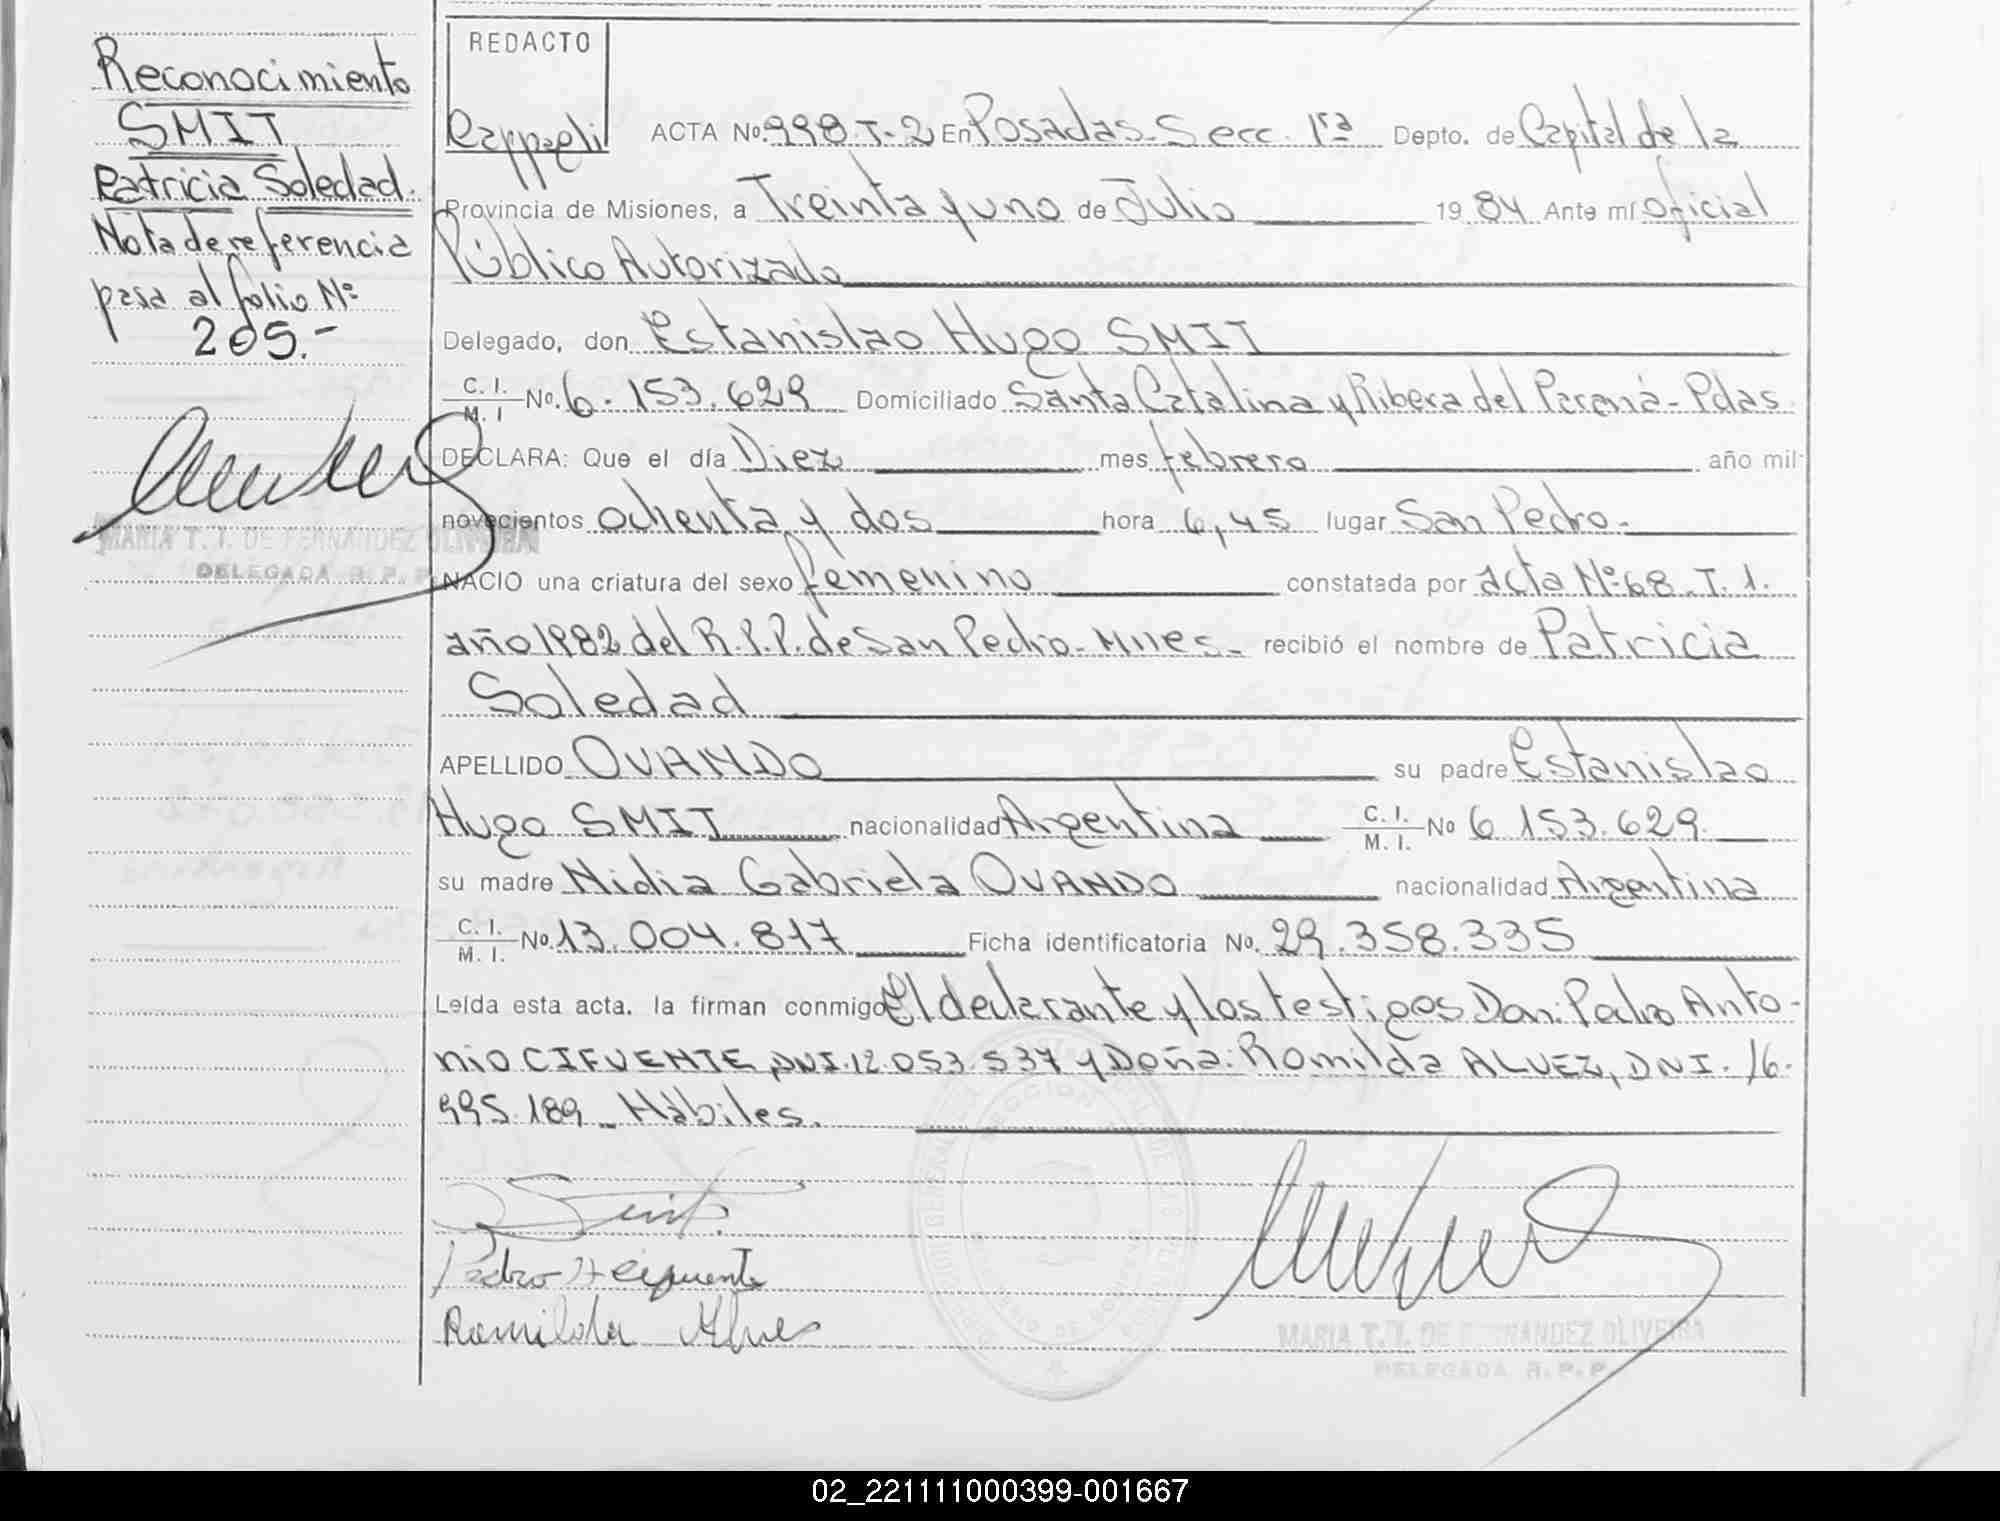 Reconocimiento
SMIT
Patricia Soledad.
Nota de referencia
pasa al folio Nº
205.-
MARIA T. I. DE FERNANDEZ OLIVEIRA
DELEGADA R. P. P.
REDACTO
Rappeli
ACTA Nº 998.T-2 En Posadas-Secc. 1ra Depto. de Capital de la
Provincia de Misiones, a Treinta y uno de Julio 19 84 Ante mí Oficial
Público Autorizado
Delegado, don Estanislao Hugo SMIT
C. I. M. I Nº. 6.153.629 Domiciliado Santa Catalina y Ribera del Paraná-Pdas.
DECLARA: Que el día Diez mes febrero año mil
novecientos ochenta y dos hora 6,45 lugar San Pedro.
NACIO una criatura del sexo femenino constatada por acta Nº 68.T.1.
año 1982 del R.P.P. de San Pedro-Mnes- recibió el nombre de Patricia
Soledad
APELLIDO OVANDO su padre Estanislao
Hugo SMIT nacionalidad Argentina C. I. M. I. Nº 6.153.629.
su madre Nidia Gabriela OVANDO nacionalidad Argentina
C. I. M. I. Nº. 13.004.817 Ficha identificatoria Nº. 29.358.335
Leída esta acta. la firman conmigo El declarante y los testigos Don: Pedro Anto-
nio CIFUENTE, DNI.12.053.537 y Doña: Romilda ALVEZ, DNI. 16.
995.189_ Hábiles.
Smit
Pedro A cifuente
Romilda Alves
MARIA T. I. DE FERNANDEZ OLIVEIRA
DELEGADA R. P. P.
02_221111000399-001667